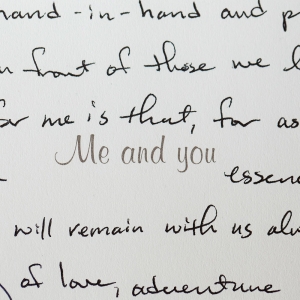 hand-in-hand and p
n front of those we l
for me is that, for as
Me and you
essenc
will remain with us alw
of love, adventure